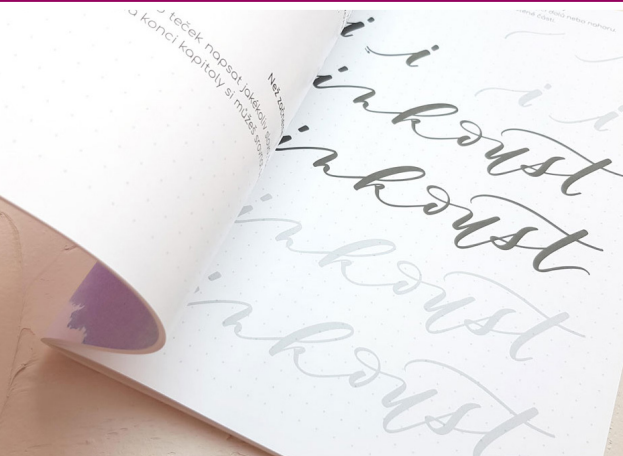 teček napsat jakékoliv
konci kapitoly si můžeš
Než
i i i
i i
inkoust
inkoust
inkoust
inkoust